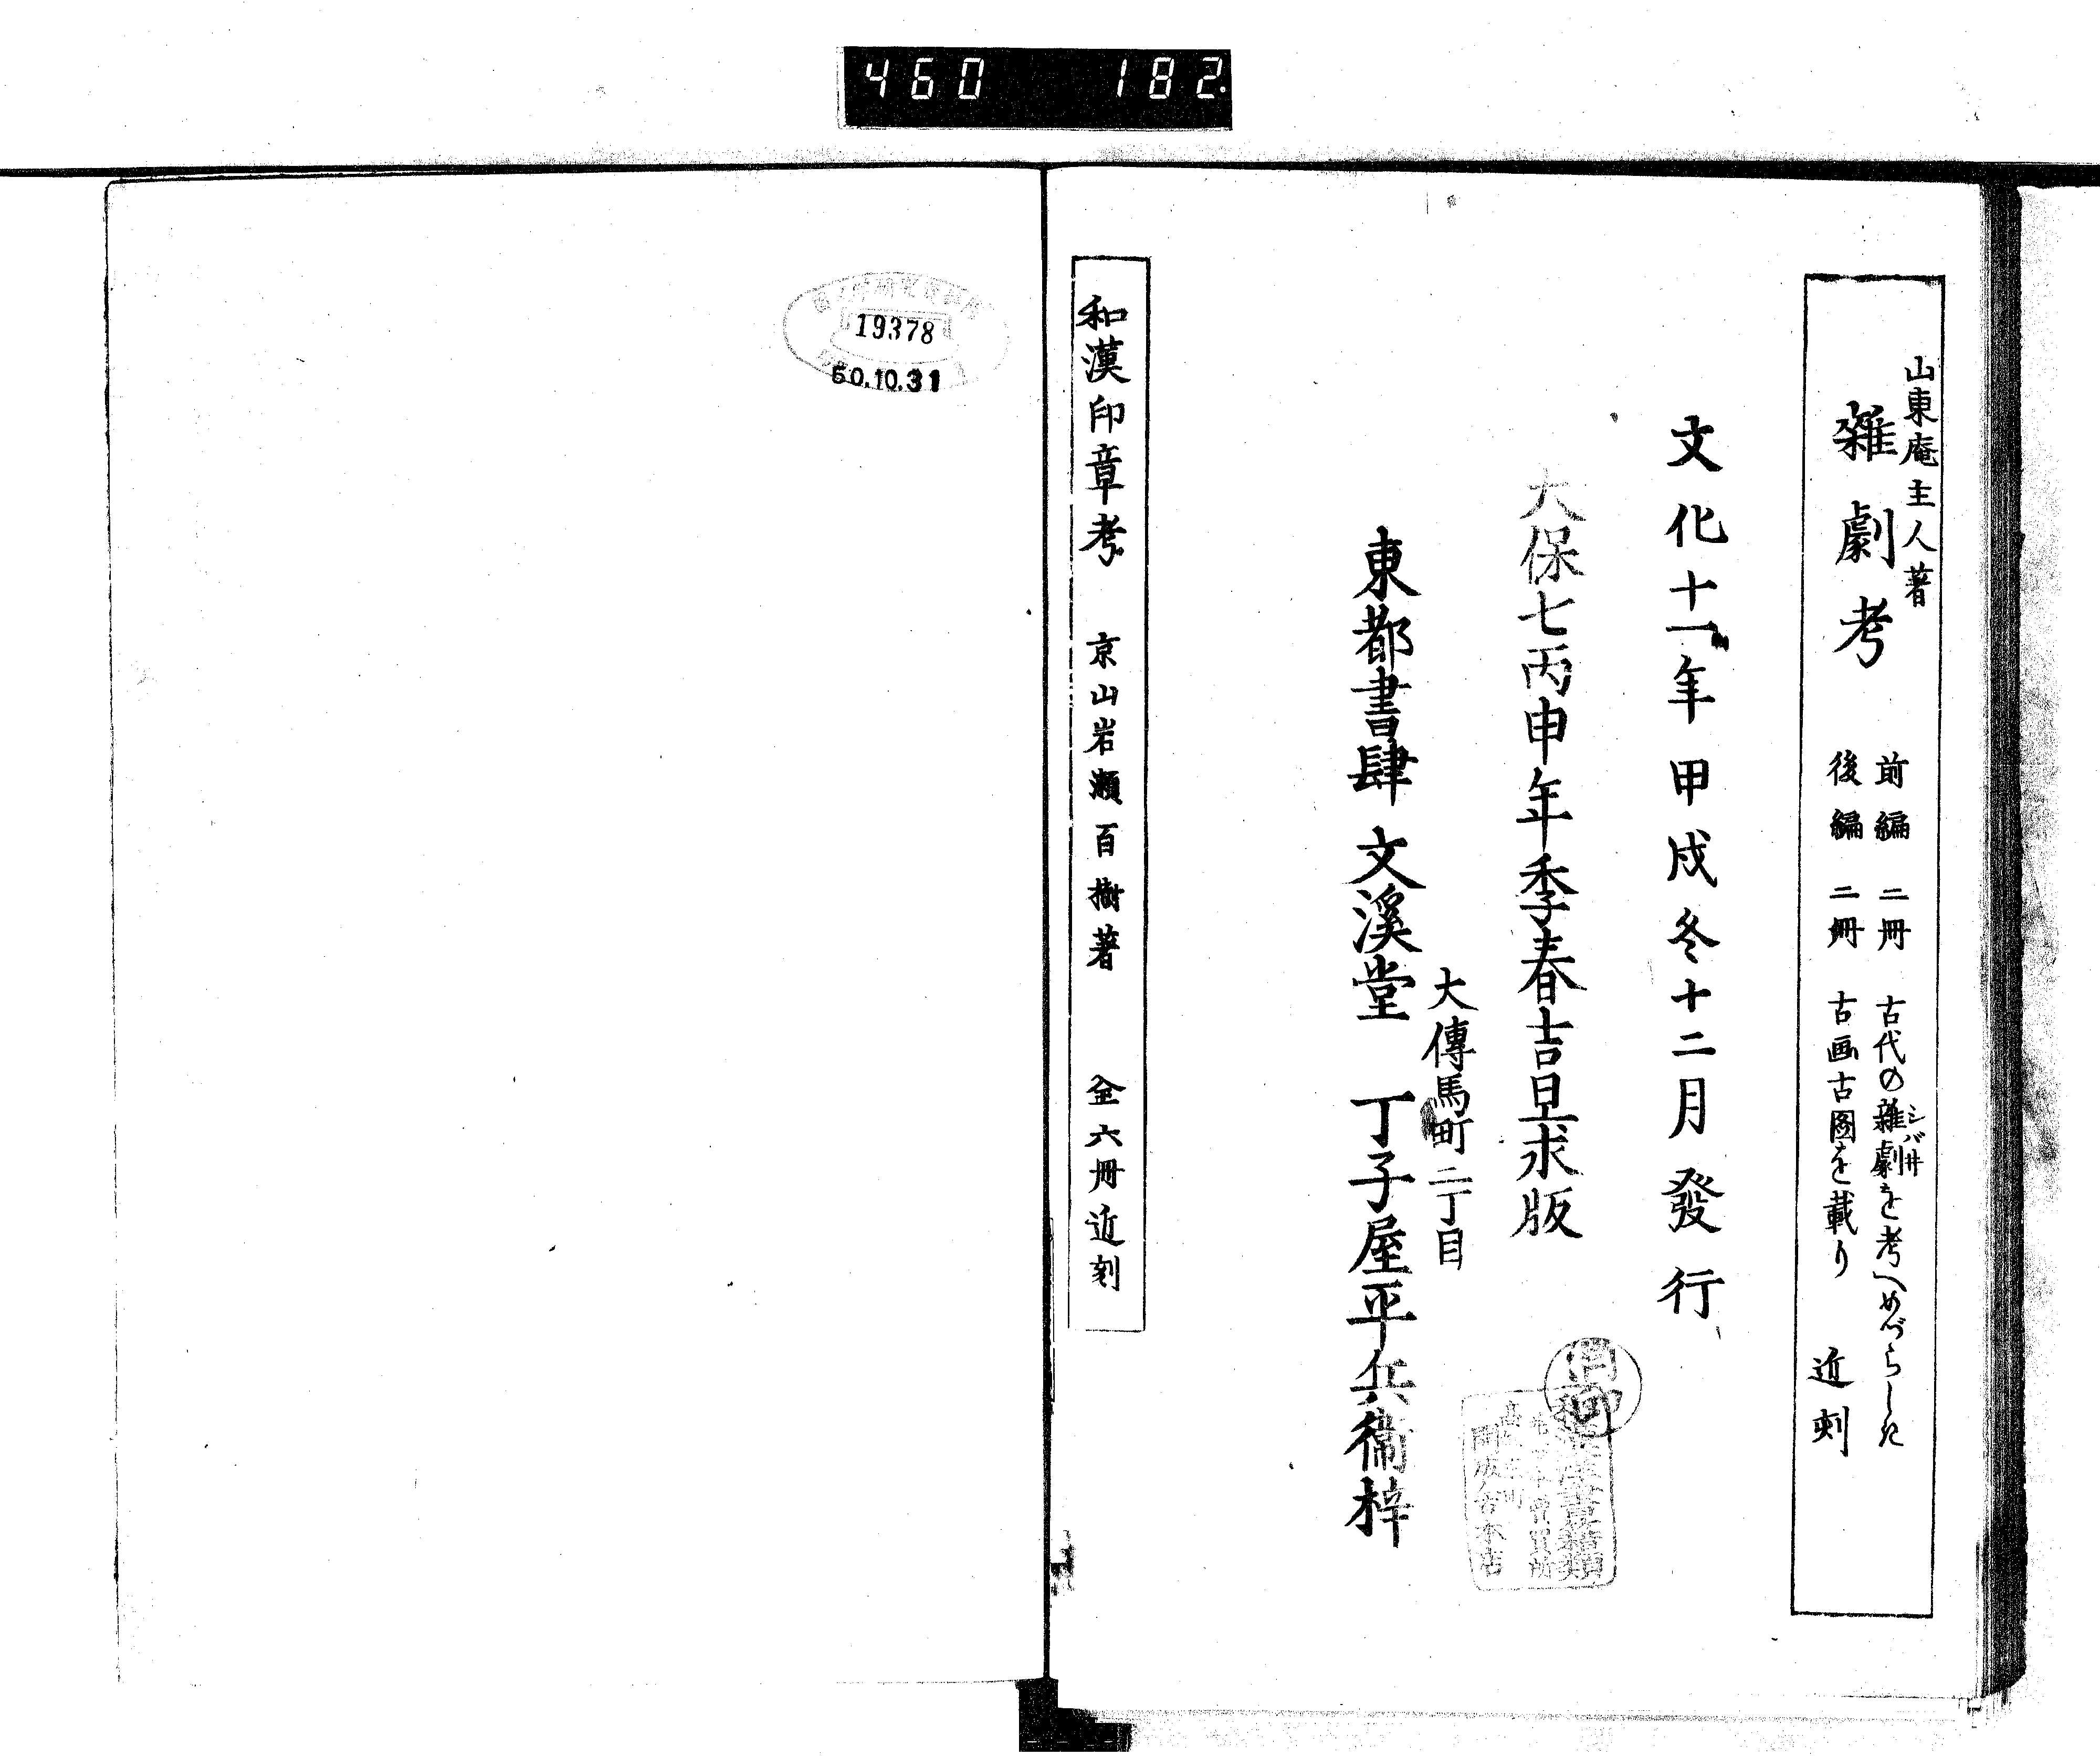 460 182.
山東庵主人著
雜劇考
前編 二冊 古代の雜劇を考へめづらしき
シバ井
後編 二冊 古画古圖を載り 近刻
文化十一年甲戌冬十二月發行
天保七丙申年季春吉旦求版
大傳馬町二丁目
東都書肆 文溪堂 丁子屋平兵衞梓
和漢印章考 京山岩瀬百樹著 全六冊近刻
19378
50.10.31